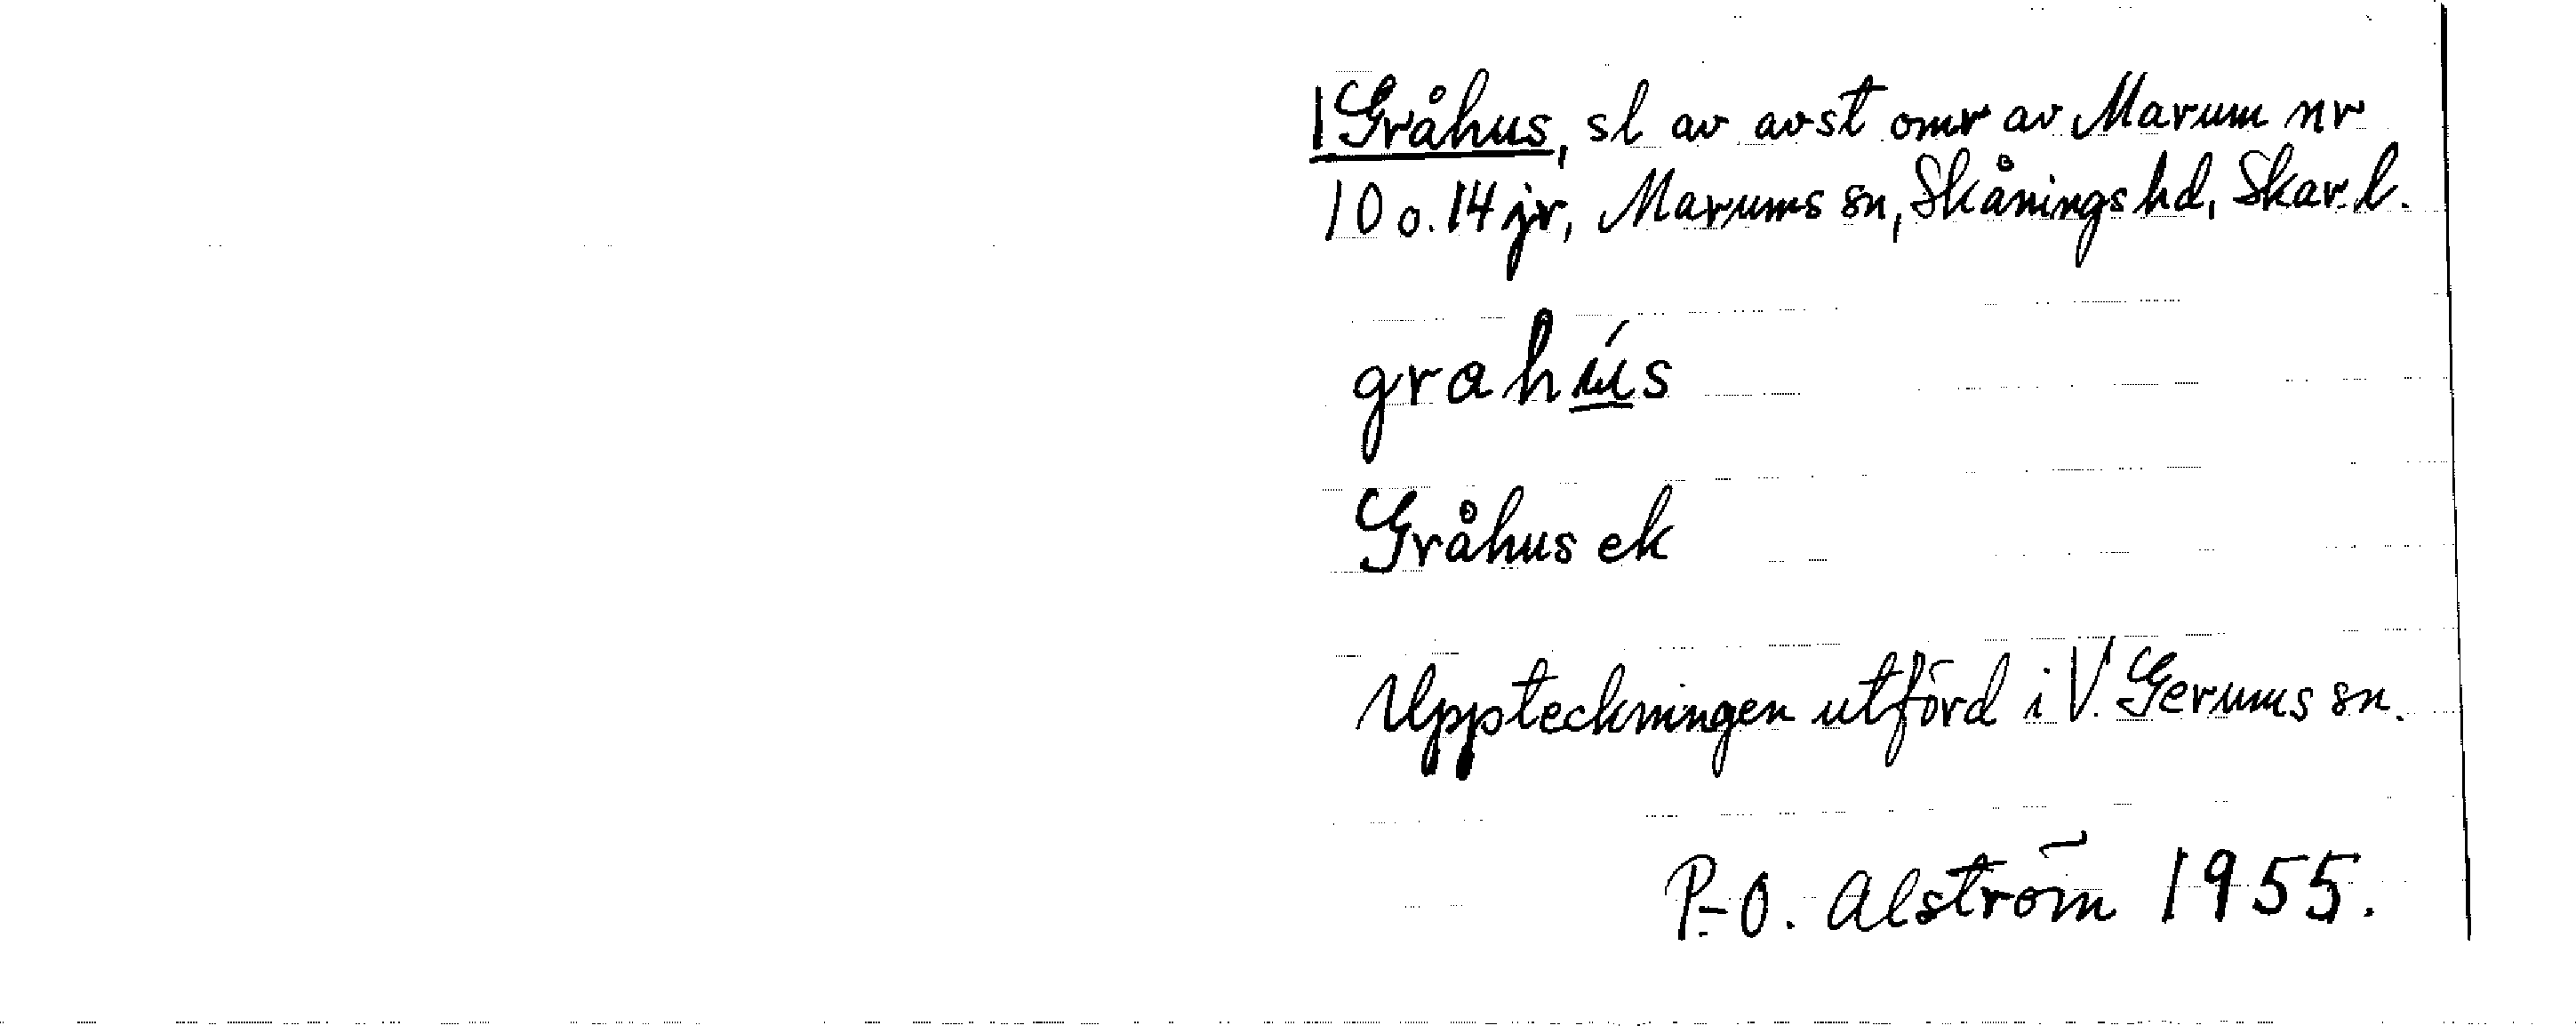 1 Gråhus, sl av avst omr av Marum nr
10 o. 14 jr, Marums sn, Skånings hd, Skar. l.
grahús
Gråhus ek
Uppteckningen utförd i V. Gerums sn.
P-O. Alström 1955.